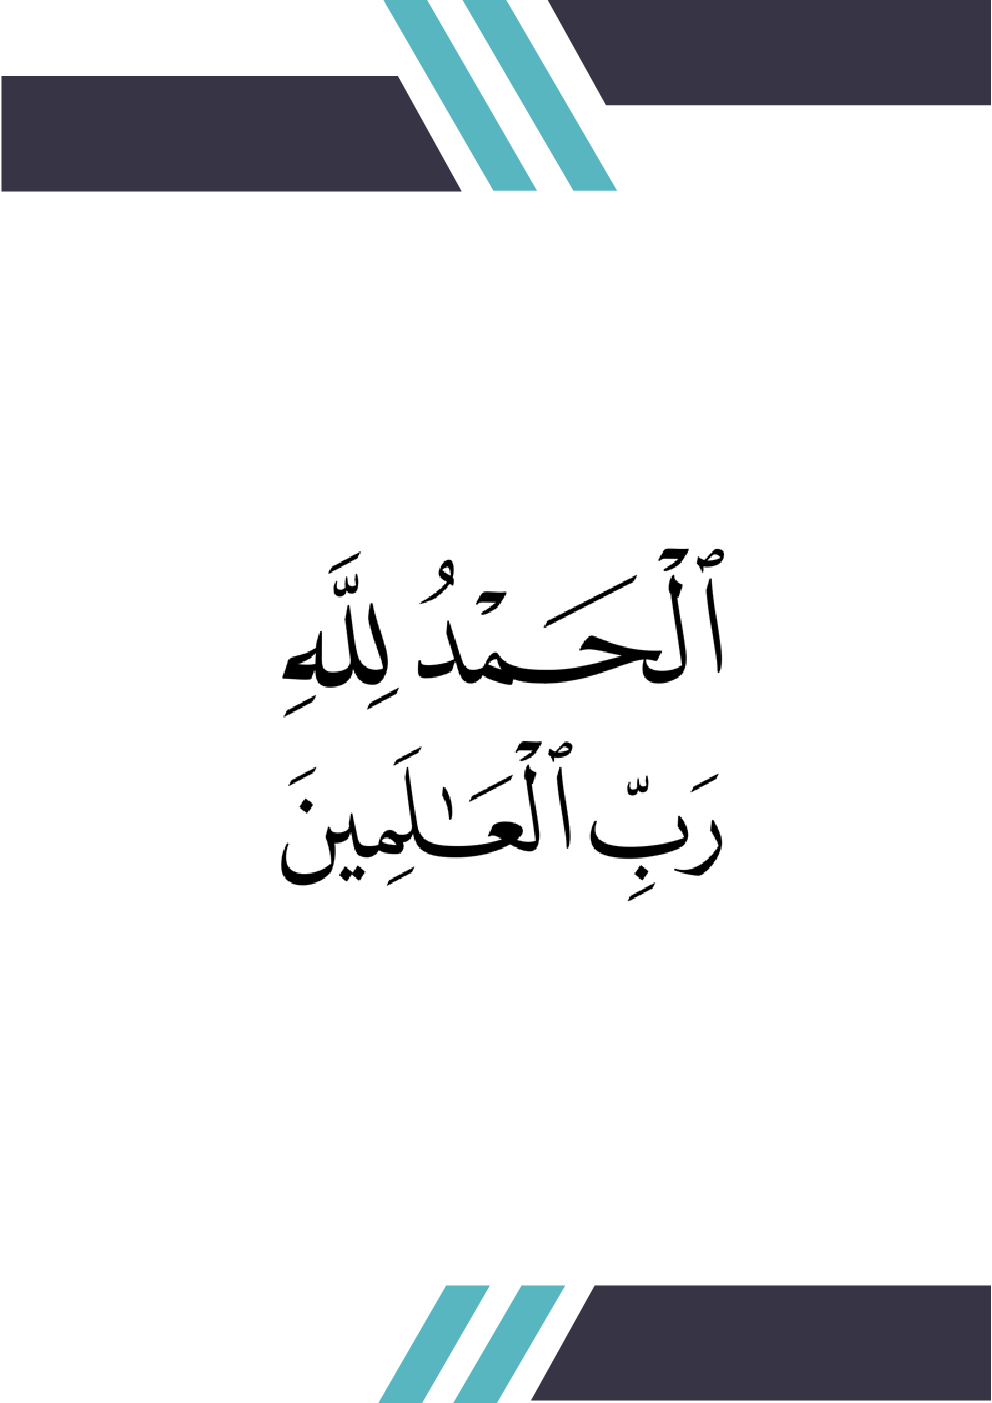 ٱلْحَمْدُ لِلَّهِ
رَبِّ ٱلْعَـٰلَمِينَ